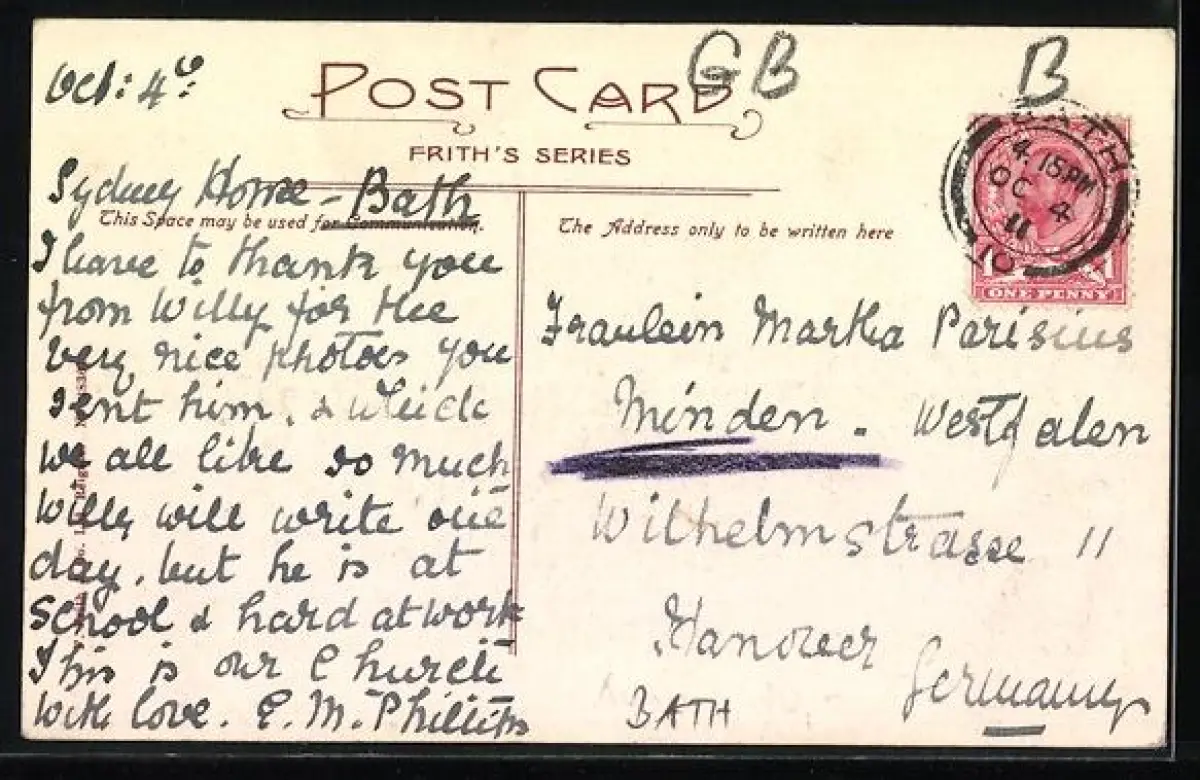 Oct: 4th
GB
B
POST CARD
FRITH'S SERIES
Sydney House - Bath
This Space may be used for Communication.
I have to thank you
from Willy for the
very nice photoes you
sent him, & which
we all like so much
Willy will write one
day, but he is at
School & hard at work
This is our Church
with love. E. M. Phillips
The Address only to be written here
BATH
4.15PM
OC 4
11
ONE PENNY
Fraulein Martha Parisius
Minden. Westfalen
Wilhelmstrasse 11
Hanover
Germany
BATH